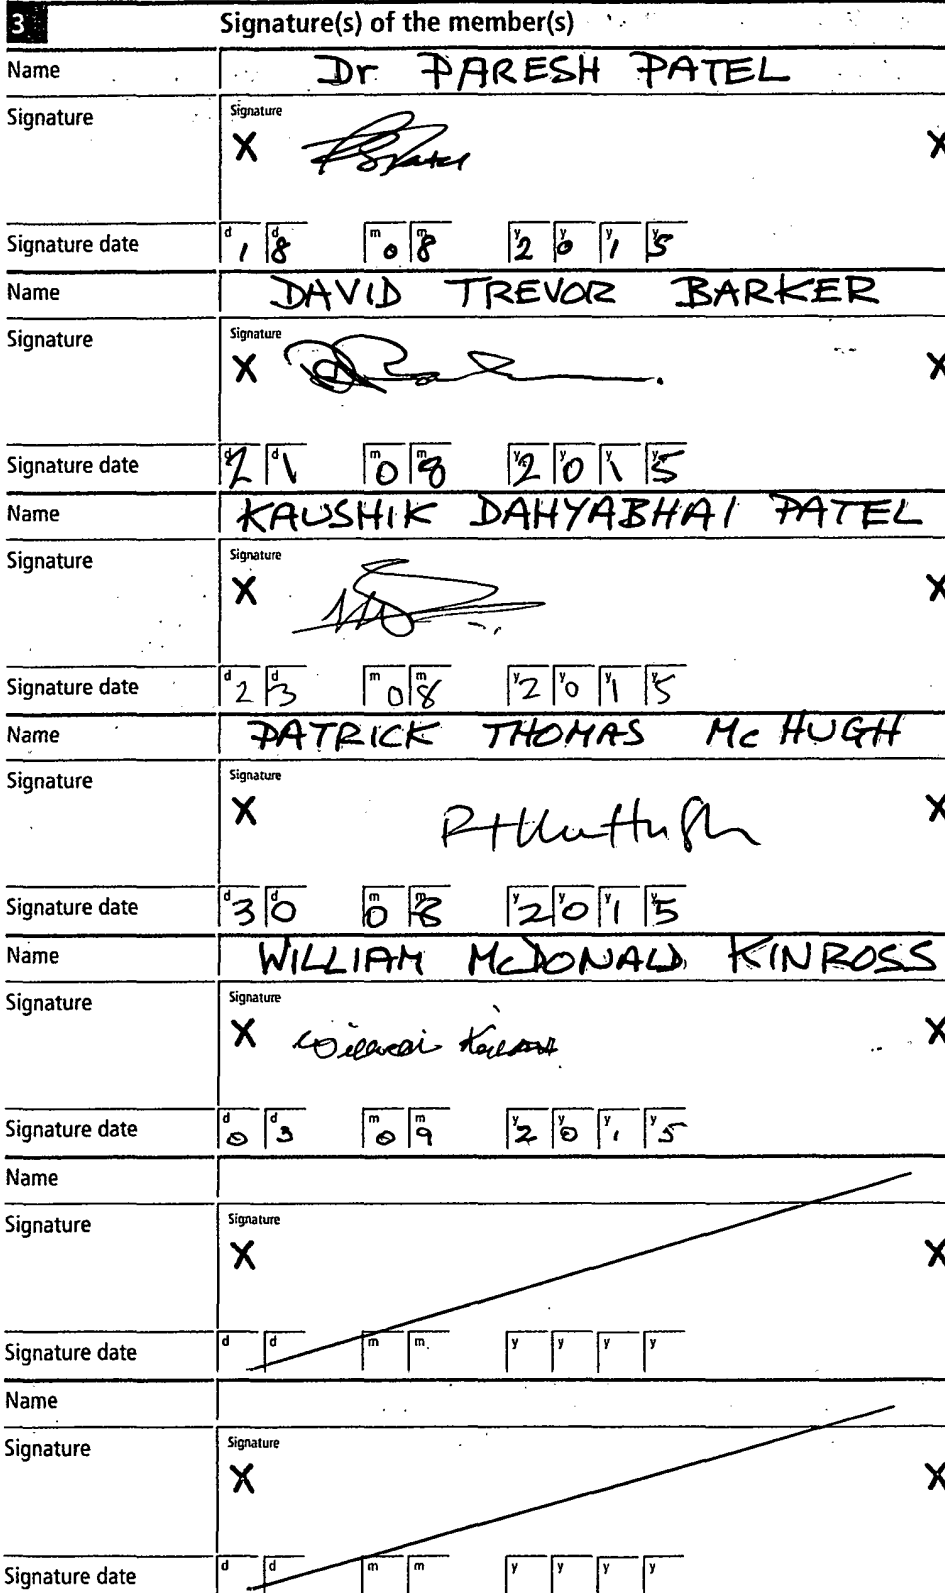 3 Signature(s) of the member(s)
Name Dr PARESH PATEL
Signature Signature
X X
Signature date d d m m y y y y 18 08 2015
Name DAVID TREVOR BARKER
Signature Signature
X X
Signature date d d m m y y y y 21 08 2015
Name KAUSHIK DAHYABHAI PATEL
Signature Signature
X X
Signature date d d m m y y y y 23 08 2015
Name PATRICK THOMAS McHUGH
Signature Signature
X X
Signature date d d m m y y y y 30 08 2015
Name WILLIAM McDONALD KINROSS
Signature Signature
X X
Signature date d d m m y y y y 03 09 2015
Name
Signature Signature
X X
Signature date d d m m y y y y
Name
Signature Signature
X X
Signature date d d m m y y y y